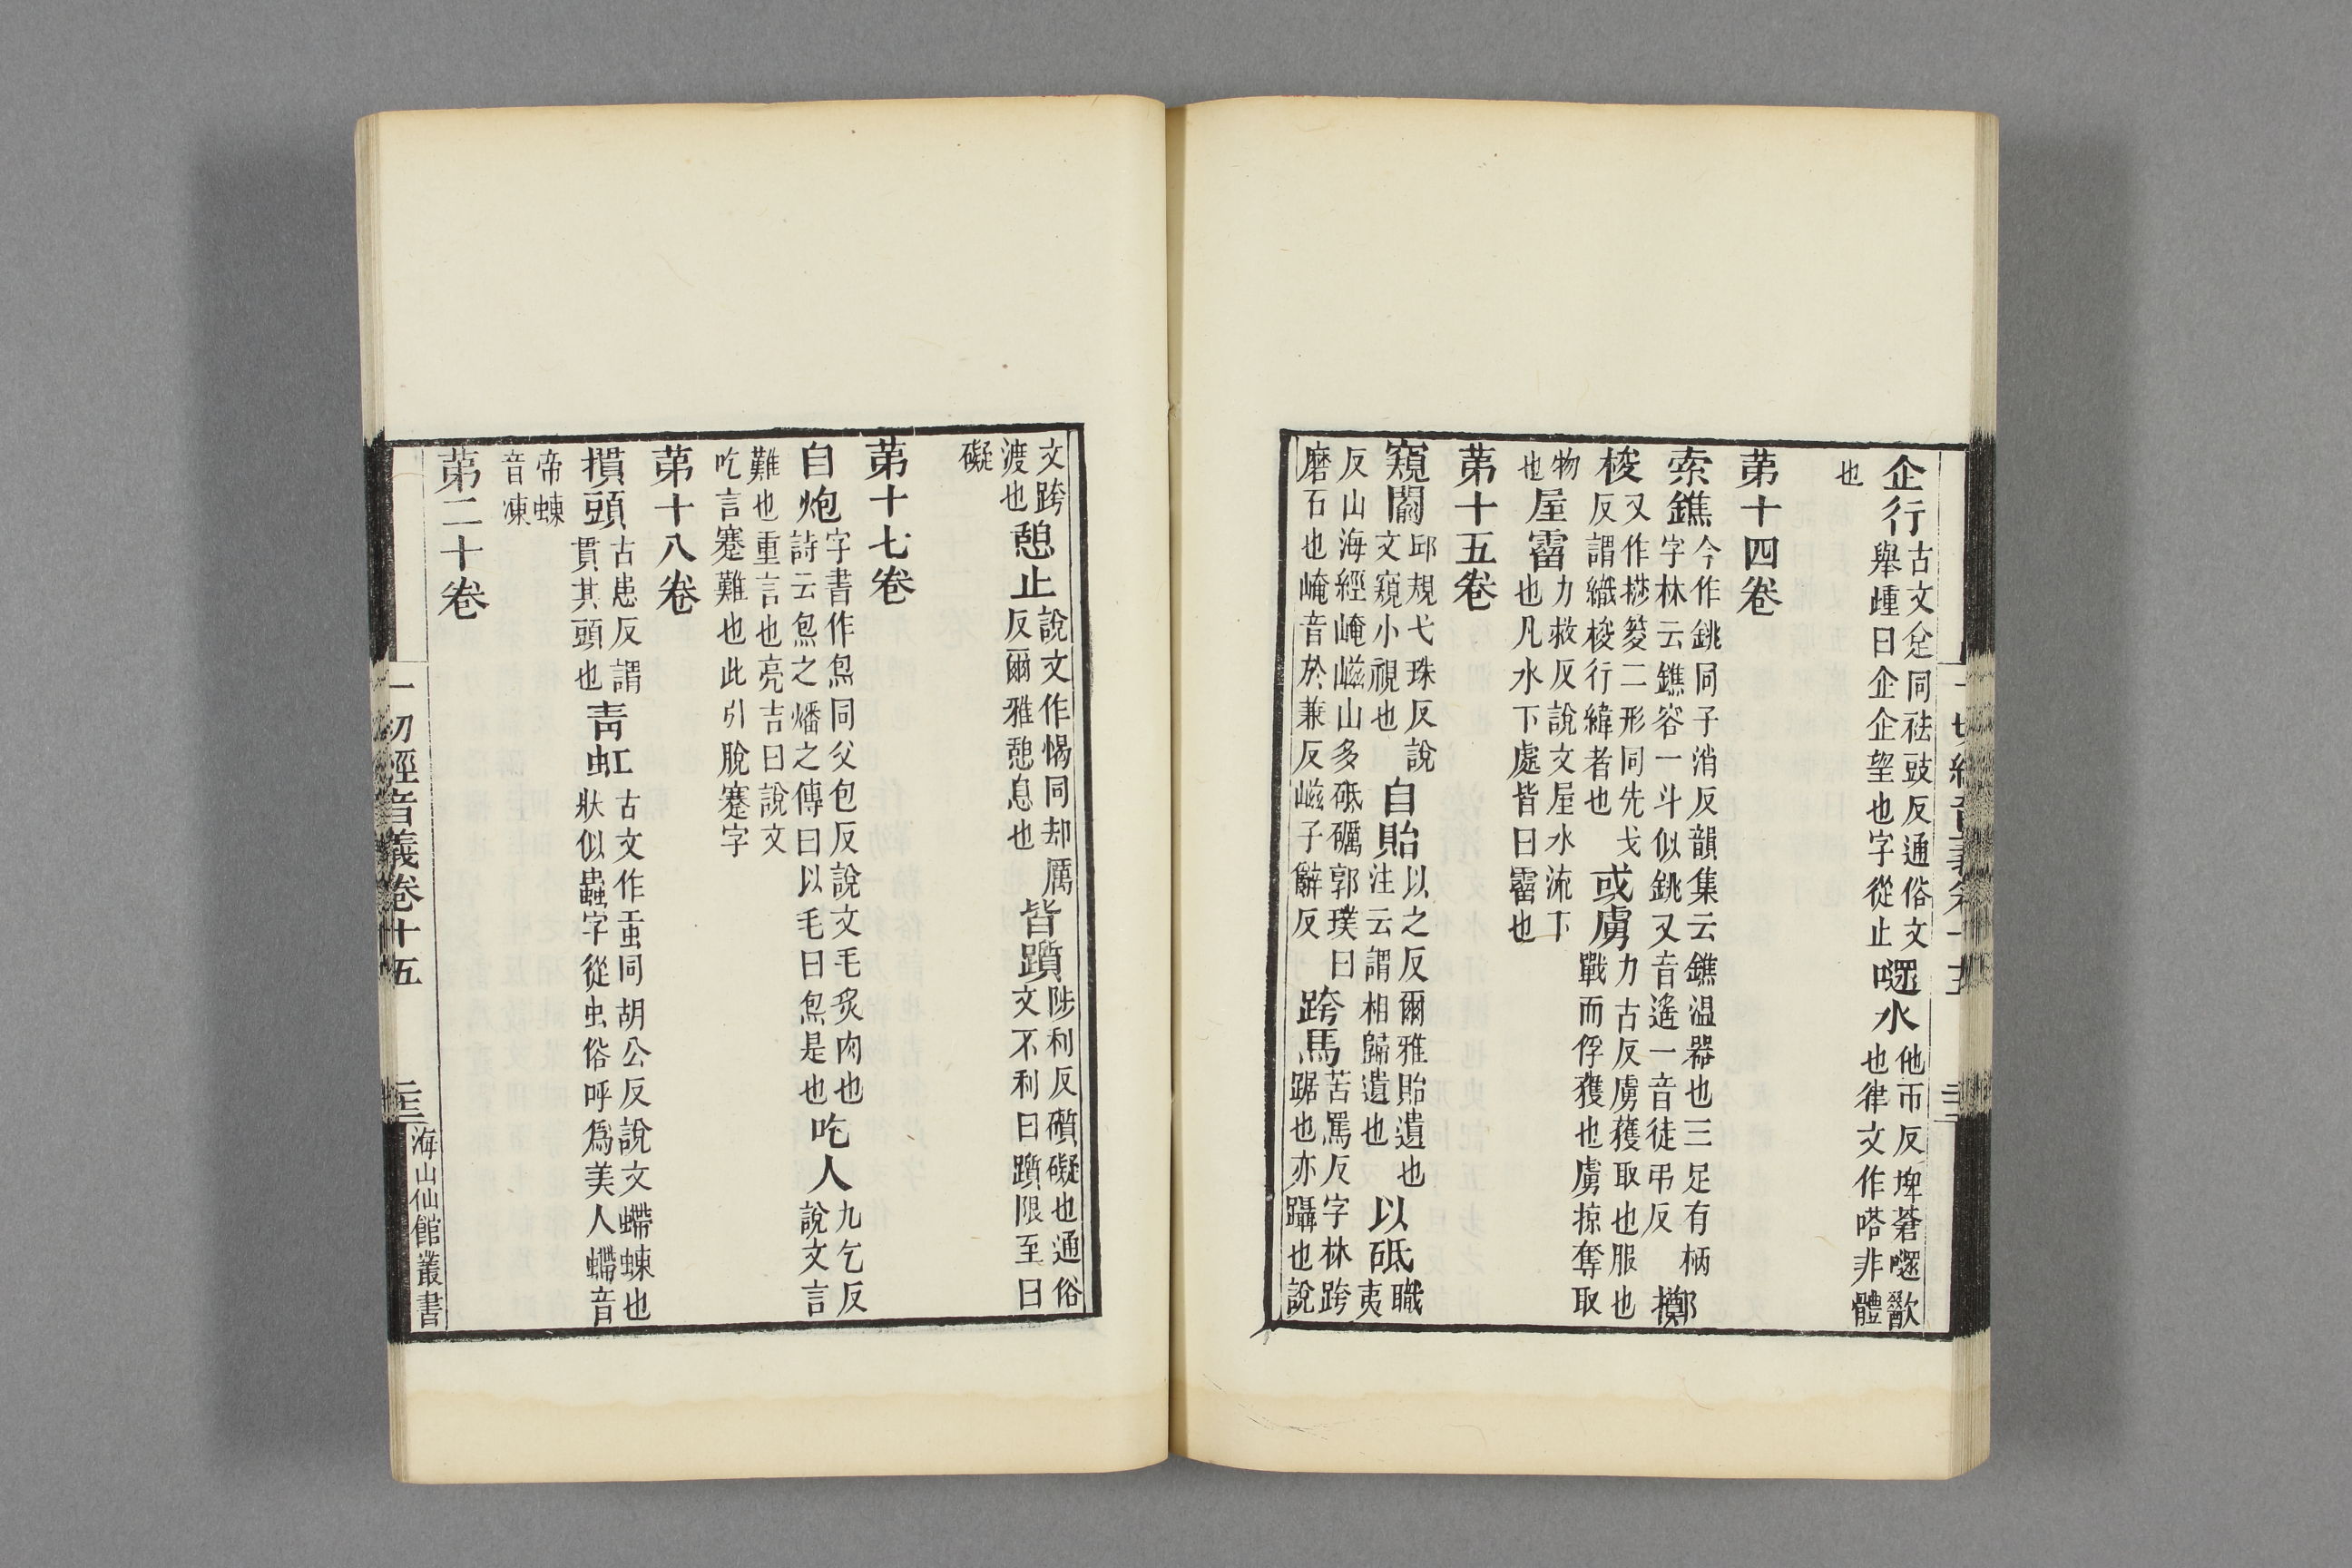 企行古文𠈮同袪豉反通俗文
舉踵曰企企望也字從止
㗳水他帀反埤蒼㗳歠
也律文作嗒非體
也
第十四卷
索鐎今作銚同子消反韻集云鐎温器也三足有柄
字林云鐎容一斗似銚又音遙一音徒弔反
擲
梭又作㮴䈳二形同先戈
反謂織梭行緯者也
或虜力古反虜獲取也服也
戰而俘獲也虜掠奪取
物
也
屋霤力救反說文屋水流下
也凡水下處皆曰霤也
第十五卷
窺闟邱規弋珠反說
文窺小視也
自貽以之反爾雅貽遺也
注云謂相歸遺也
以砥職
夷
反山海經崦嵫山多砥礪郭璞曰
磨石也崦音於兼反嵫子辭反
跨馬苦罵反字林跨
踞也亦躡也說
文跨
渡也
憩止說文作愒同却厲
反爾雅憩息也
皆躓陟利反礩礙也通俗
文不利曰躓限至曰
礙
第十七卷
自炮字書作炰同父包反說文毛炙肉也
詩云炰之燔之傳曰以毛曰炰是也
吃人九乞反
說文言
難也重言也亮吉曰說文
吃言蹇難也此引脫蹇字
第十八卷
摜頭古患反謂
貫其頭也
青虹古文作𧈫同胡公反說文螮蝀也
狀似蟲字從虫俗呼爲美人螮音
帝蝀
音凍
第二十卷
一切經音義卷十五
二十三
海山仙館叢書